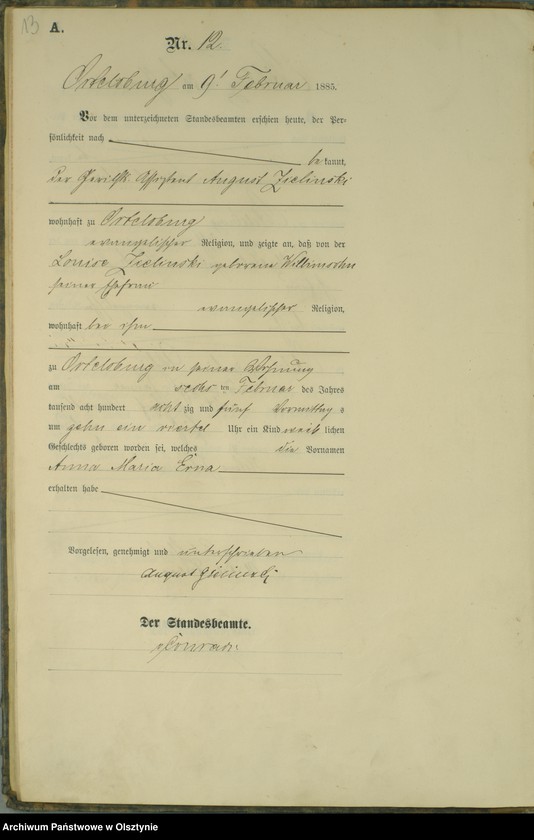 13
A.
Nr. 12.
Ortelsburg am 9t Februar 1885.
Vor dem unterzeichneten Standesbeamten erschien heute, der Per-
sönlichkeit nach
be kannt,
der Gerichts Assistent August Zielinski
wohnhaft zu Ortelsburg
evangelischer Religion, und zeigte an, daß von der
Louise Zielinski geborene
seiner Ehefrau
evangelischer Religion,
wohnhaft bei ihm
zu Ortelsburg in seiner Wohnung
am sechs ten Februar des Jahres
tausend acht hundert acht zig und fünf Vormittag s
um zehn ein viertel Uhr ein Kind weib lichen
Geschlechts geboren worden sei, welches die Vornamen
Anna Maria Erna
erhalten habe
Vorgelesen, genehmigt und unterschrieben
August Zielinski
Der Standesbeamte.
Archiwum Państwowe w Olsztynie